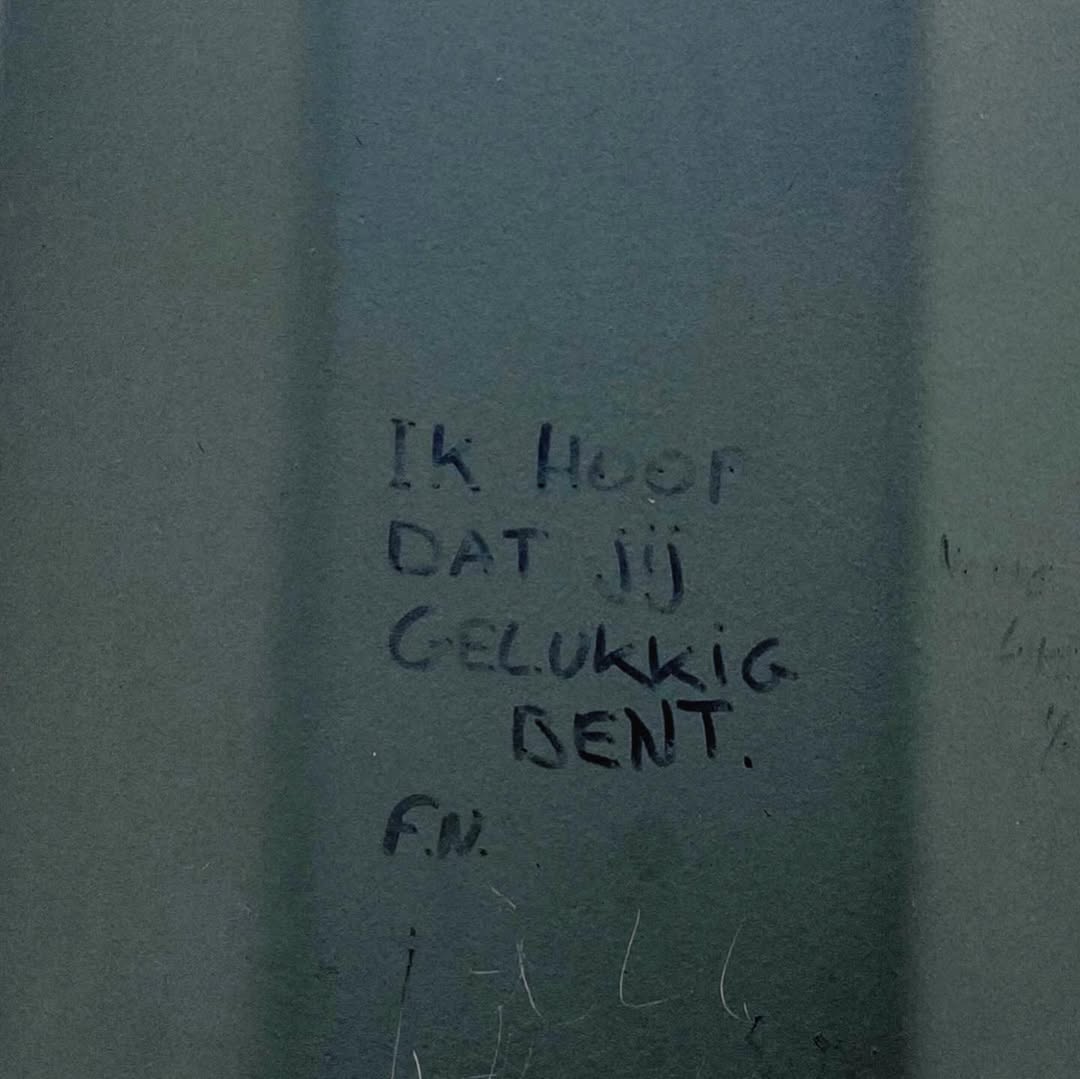 Ik HOOP
DAT jij
GELUKKiG
BENT.
F.N.